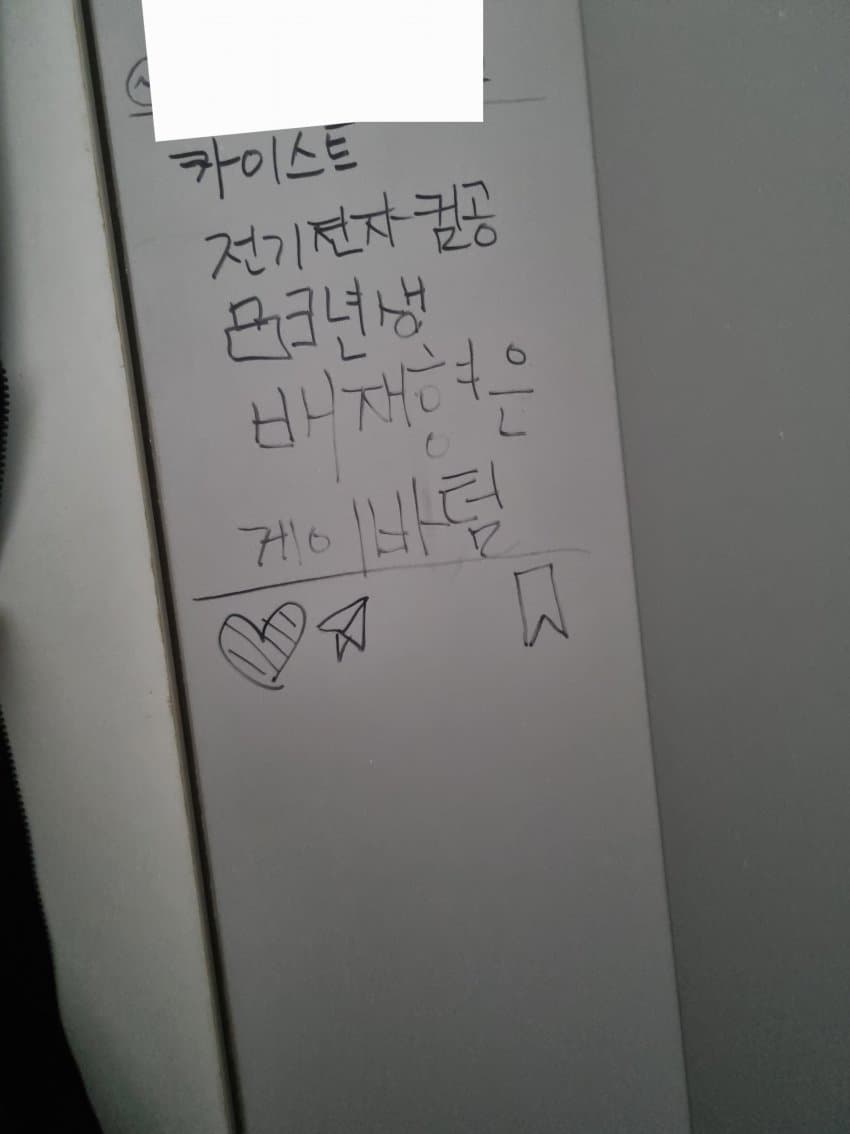 카이스트
전기전자 컴공
03년생
배재형은
게이바텀